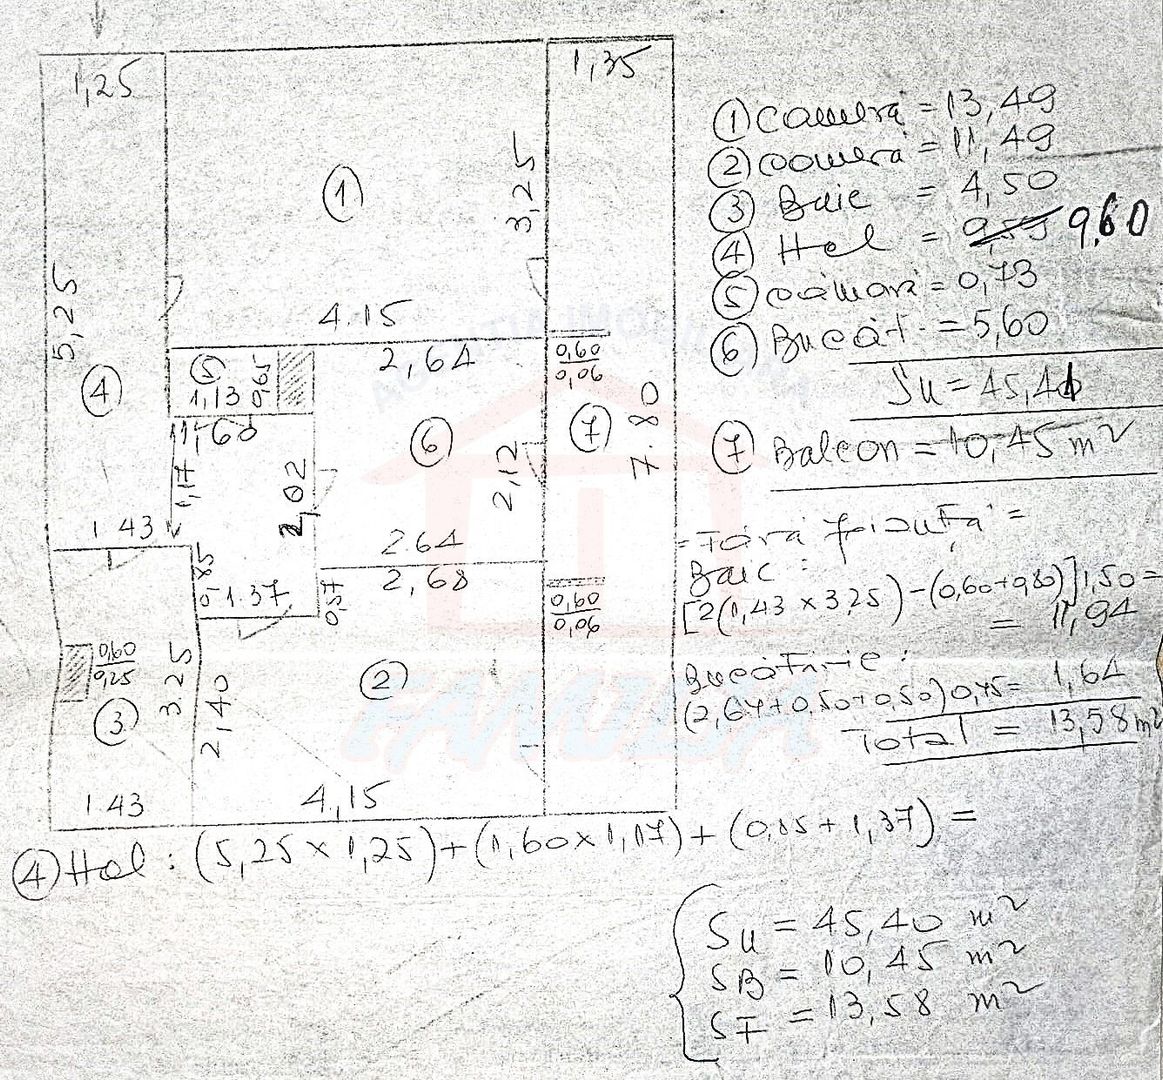 1,25
1,35
① Cameră = 13,49
② Cameră = 11,49
③ Baie = 4,50
④ Hol = 9,60
⑤ Cămară = 0,73
⑥ Bucăt. = 5,60
Su = 45,41
⑦ Balcon = 10,45 m²
①
3,25
5,25
4.15
④
⑤
1,13
0,65
2,64
0,60
0,06
1,60
⑥
⑦
7.80
1,17
2,02
2,12
1 43
2.64
0,85
1.37
0,57
2,68
0,60
0,06
0,60
0,25
③
3 25
2,40
②
1 43
4,15
FAMILIA
Baie :
[2(1,43 x 3,25) - (0,60+0,80)]1,50 =
= 11,94
Bucătărie :
(2,64+0,50+0,50) 0,45 = 1,64
Total = 13,58 m²
④ Hol : (5,25 x 1,25) + (1,60 x 1,17) + (0,85 + 1,37) =
Su = 45,40 m²
SB = 10,45 m²
SF = 13,58 m²